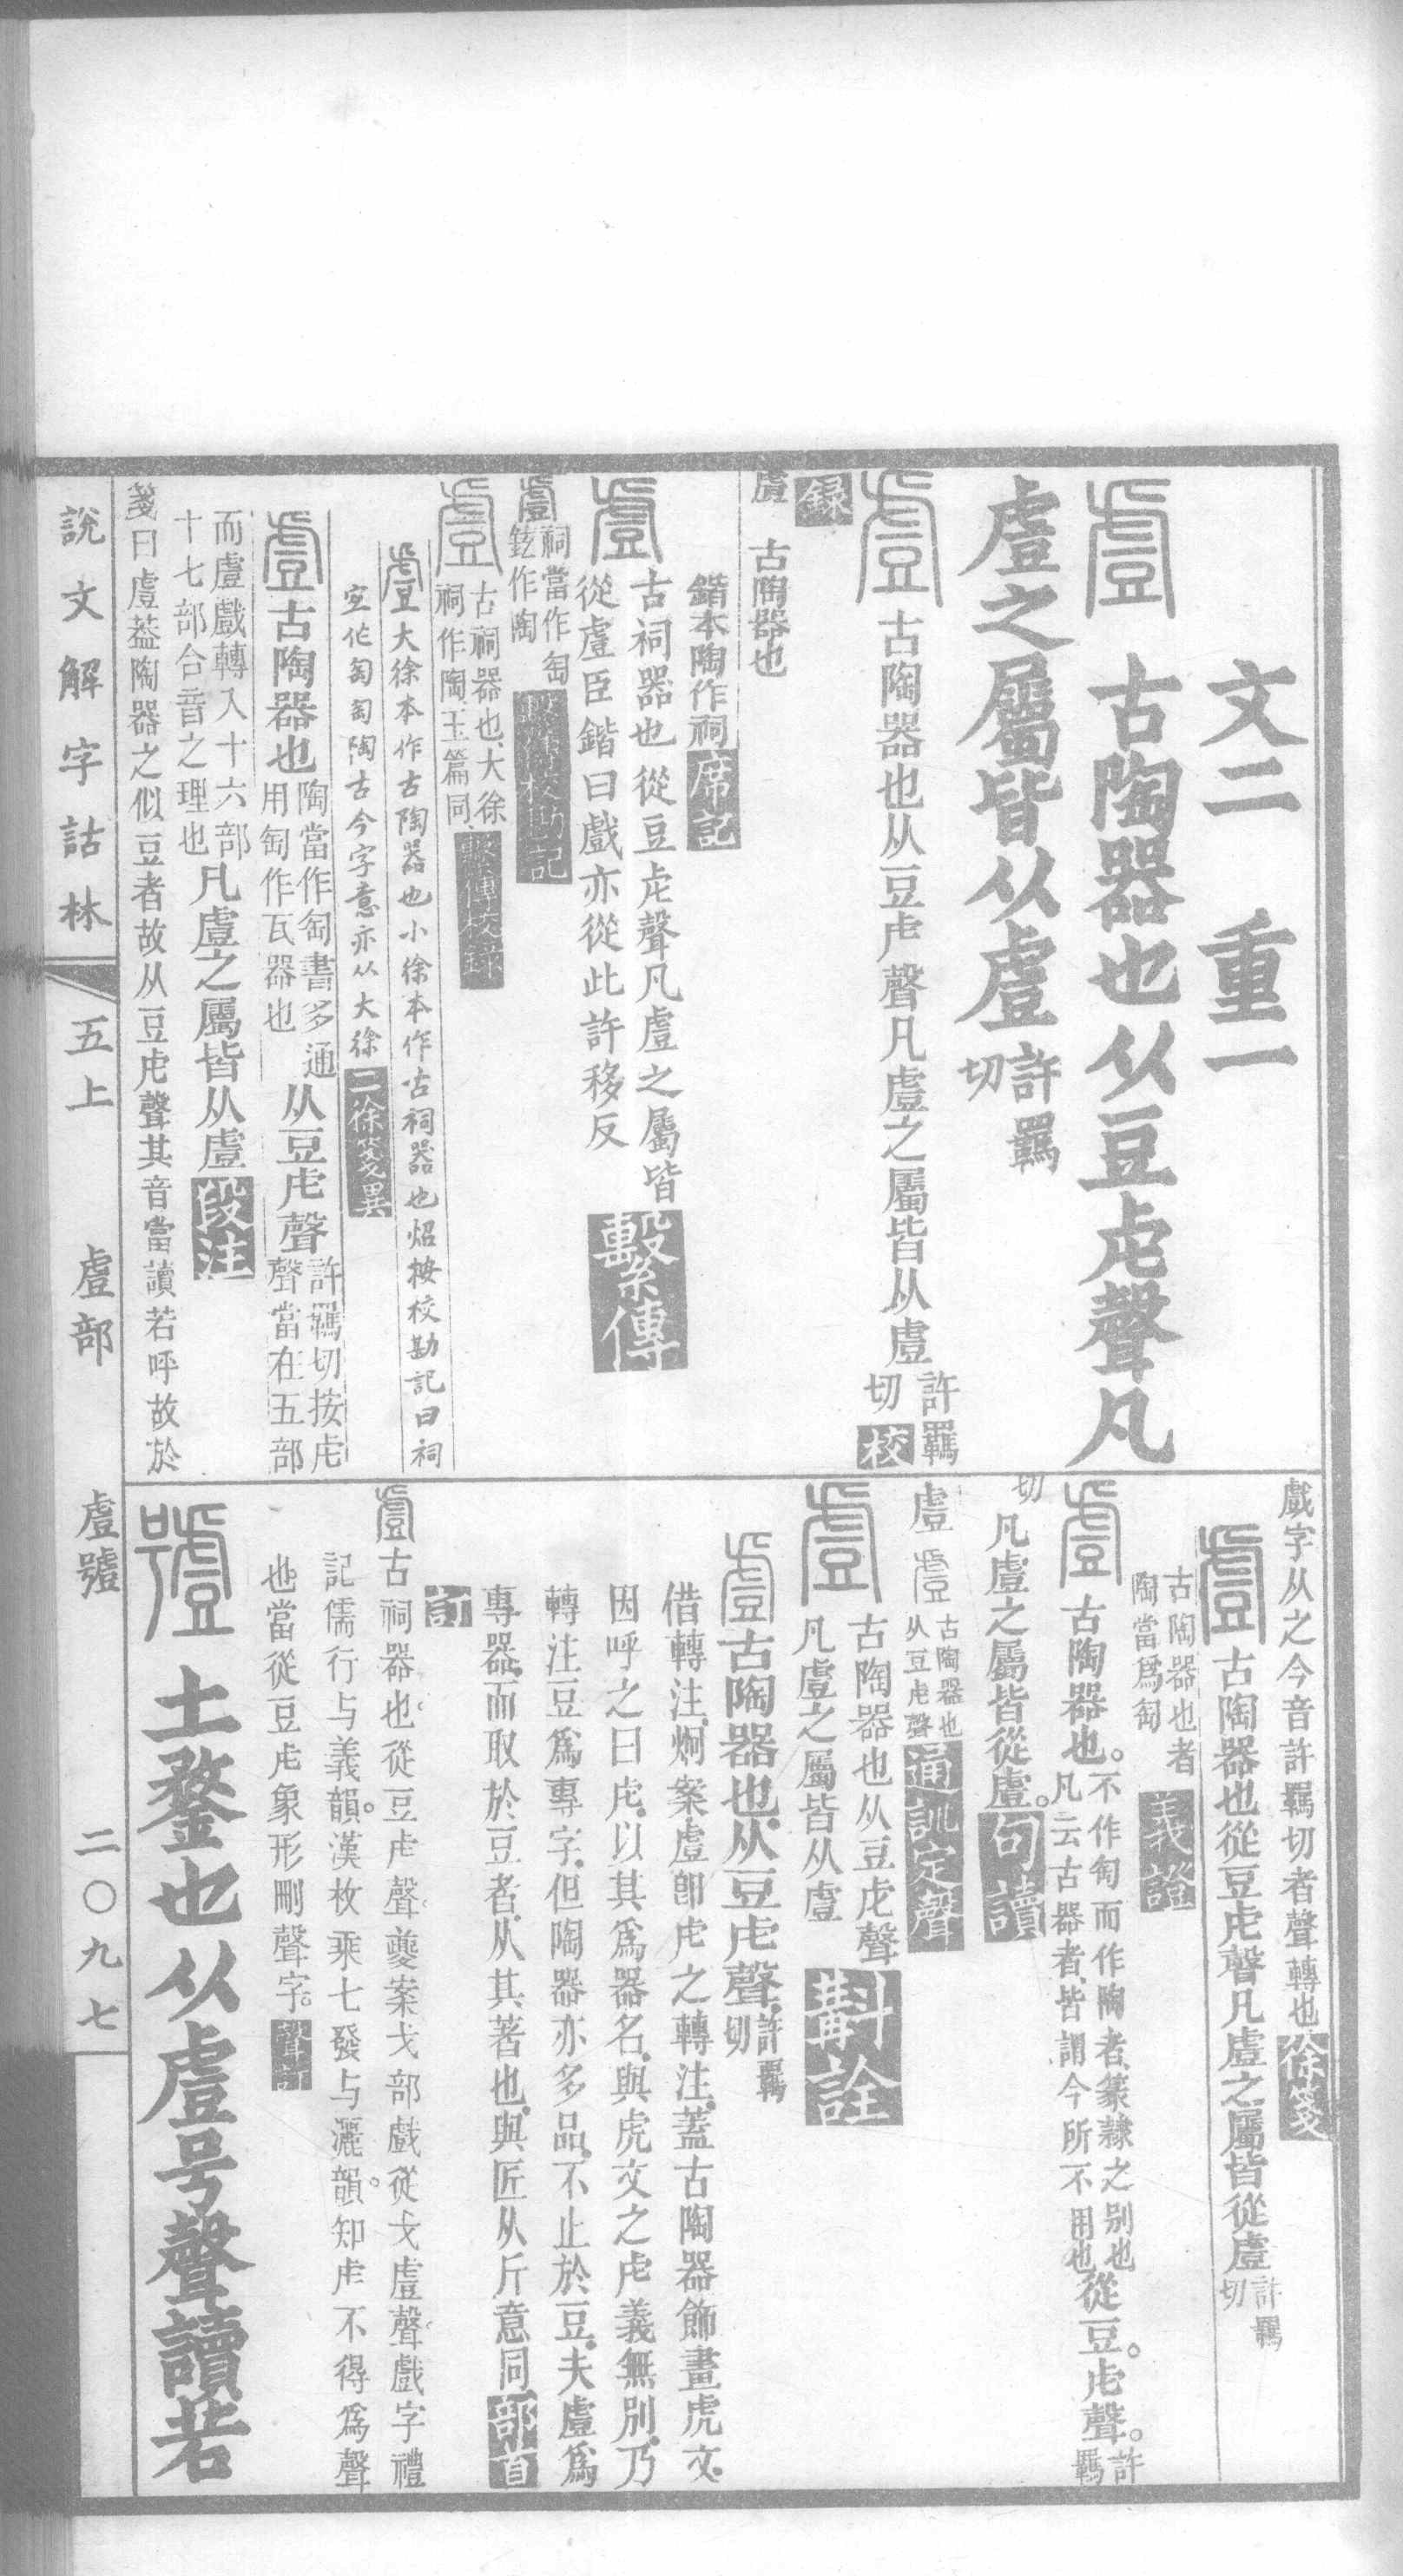 文二　重一
古陶器也从豆虍聲凡
䖒之屬皆从䖒許羈切
古陶器也从豆虍聲凡䖒之屬皆从䖒許羈切校
錄
䖒　古陶器也
鍇本陶作祠席記
古祠器也從豆虍聲凡䖒之屬皆
從䖒臣鍇曰戲亦從此許移反繫傳
䖒祠當作匋
鉉作陶繫傳校勘記
古祠器也大徐
祠作陶玉篇同繫傳校錄
大徐本作古陶器也小徐本作古祠器也炤按校勘記曰祠
宐作匋匋陶古今字意亦从大徐二徐箋異
䖒古陶器也陶當作匋書多通用匋作瓦器也从豆虍聲許羈切按虍聲當在五部
而䖒戲轉入十六部十七部合音之理也凡䖒之屬皆从䖒段注
箋曰䖒葢陶器之似豆者故从豆虍聲其音當讀若呼故於
戲字从之今音許羈切者聲轉也徐箋
古陶器也從豆虍聲凡䖒之屬皆從䖒許羈切
古陶器也者
陶當爲匋義證
古陶器也。不作匋而作陶者、篆隸之別也凡云古器者、皆謂今所不用也從豆。虍聲。許羈
切凡䖒之屬皆從䖒。句讀
䖒　古陶器也从豆虍聲通訓定聲
古陶器也从豆虍聲
凡䖒之屬皆从䖒斠詮
古陶器也、从豆虍聲、許羈切
借轉注、炯案、䖒卽虍之轉注、蓋古陶器飾畫虎文、
因呼之曰虍、以其爲器名、與虎文之虍義無別、乃
轉注豆爲專字、但陶器亦多品、不止於豆、夫䖒爲
專器、而取於豆者、从其著也、與匠从斤意同部首
訂
古祠器也。從豆虍聲。夔案戈部戲從戈䖒聲。戲字禮
記儒行与義韻。漢枚乘七發与灑韻。知虍不得爲聲
也。當從豆虍象形刪聲字。
土鍪也从䖒号聲讀若
說文解字詁林　五上　䖒部　䖒號　二〇九七